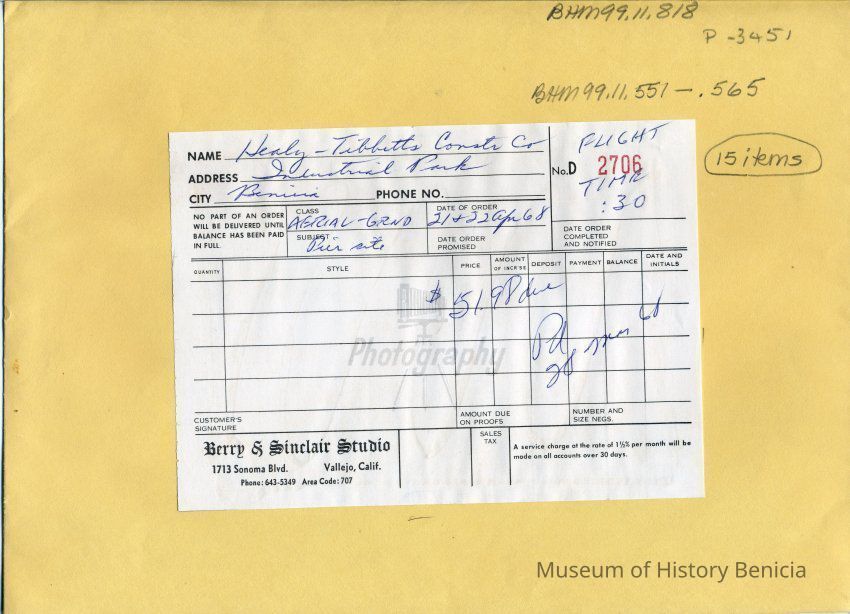 BHM99.11.818
P-3451
BHM99.11.551-.565
15 items
NAME Healy-Tibbitts Constr Co
ADDRESS Industrial Park
CITY Benicia PHONE NO.
No.D 2706
FLIGHT
TIME
:30
NO PART OF AN ORDER
WILL BE DELIVERED UNTIL
BALANCE HAS BEEN PAID
IN FULL.
CLASS
AERIAL-GRND
SUBJECT
Pier site
DATE OF ORDER
21+22 Apr 68
DATE ORDER
PROMISED
DATE ORDER
COMPLETED
AND NOTIFIED
QUANTITY STYLE PRICE AMOUNT OF INCR'SE DEPOSIT PAYMENT BALANCE DATE AND INITIALS
$ 51.98 due
Pd
28 68
Photography
CUSTOMER'S
SIGNATURE
AMOUNT DUE
ON PROOFS
NUMBER AND
SIZE NEGS.
Berry & Sinclair Studio
1713 Sonoma Blvd. Vallejo, Calif.
Phone: 643-5349 Area Code: 707
SALES
TAX
A service charge at the rate of 1½% per month will be
made on all accounts over 30 days.
Museum of History Benicia